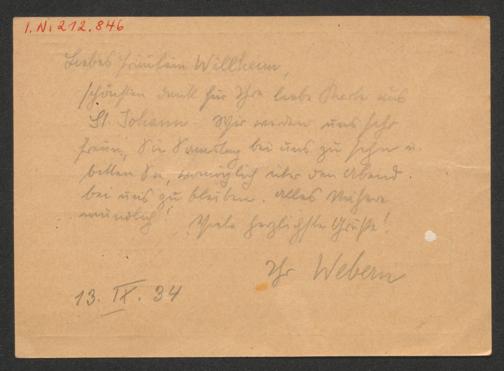 I.N. 212.846
Liebes Fräulein Willheim,
schönsten Dank für Ihre liebe Karte aus
St. Johann. Wir werden uns sehr
freuen, Sie Samstag bei uns zu sehn u.
bitten Sie, womöglich über den Abend
bei uns zu bleiben. Alles Nähere
mündlich! Viele herzlichste Grüße!
Ihr Webern
13. IX. 34